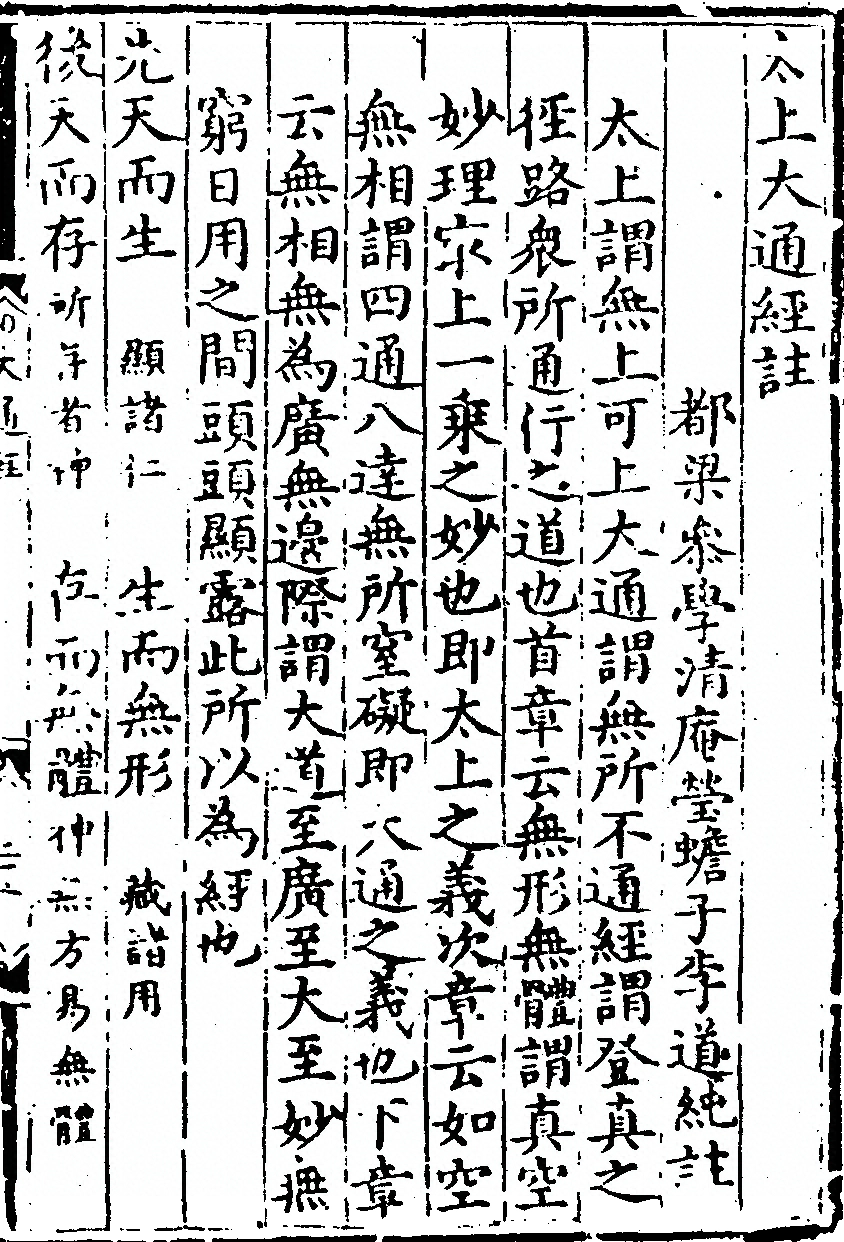 太上大通經註
都梁參學清庵瑩蟾子李道純註
太上謂無上可上大通謂無所不通經謂登真之
徑路衆所通行之道也首章云無形無體謂真空
妙理㝡上一乗之妙也即太上之義次章云如空
無相謂四通八達無所窒礙即大通之義也下章
云無相無為廣無邊際謂大道至廣至大至妙無
窮日用之間頭頭顯露此所以為經也
先天而生 顯諸仁 生而無形 藏諸用
後天而存 所存者神 存而無體 神無方易無體
大通經